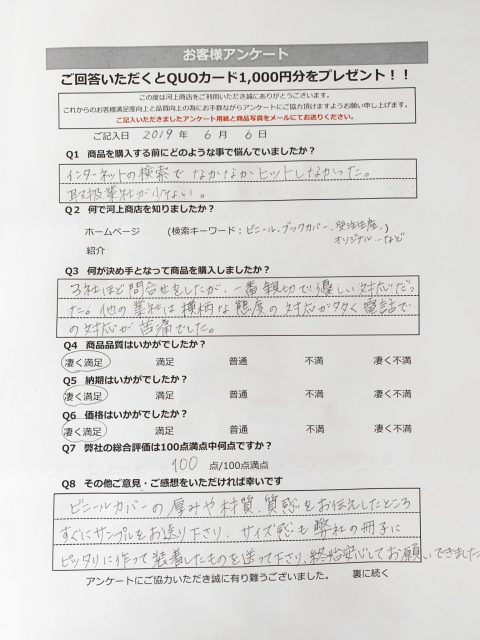 お客様アンケート
ご回答いただくとQUOカード1,000円分をプレゼント！！
この度は河上商店をご利用いただき誠にありがとうございます。
これからのお客様満足度向上と品質向上の為にお手数ながらアンケートにご協力頂けますようお願い申し上げます。
ご記入いただきましたアンケート用紙と商品写真をメールにてお送りください。
ご記入日 2019 年 6 月 6 日
Q1 商品を購入する前にどのような事で悩んでいましたか？
インターネットの検索でなかなかヒットしなかった。
取扱業社が少ない。
Q2 何で河上商店を知りましたか？
ホームページ (検索キーワード：ビニール、ブックカバー、受注生産、
オリジナル…など
紹介
Q3 何が決め手となって商品を購入しましたか？
3社ほど問合せをしたが、一番親切で優しい対応だっ
た。他の業社は横柄な態度の対応が多く電話で
の対応が苦痛でした。
Q4 商品品質はいかがでしたか？
凄く満足 満足 普通 不満 凄く不満
Q5 納期はいかがでしたか？
凄く満足 満足 普通 不満 凄く不満
Q6 価格はいかがでしたか？
凄く満足 満足 普通 不満 凄く不満
Q7 弊社の総合評価は100点満点中何点ですか？
100 点/100点満点
Q8 その他ご意見・ご感想をいただければ幸いです
ビニールカバーの厚みや材質、質感をお伝えしたところ
すぐにサンプルをお送り下さり、サイズ感も弊社の冊子に
ピッタリに作って装着したものを送って下さり、終始安心してお願いできました
アンケートにご協力いただき誠に有り難うございました。 裏に続く